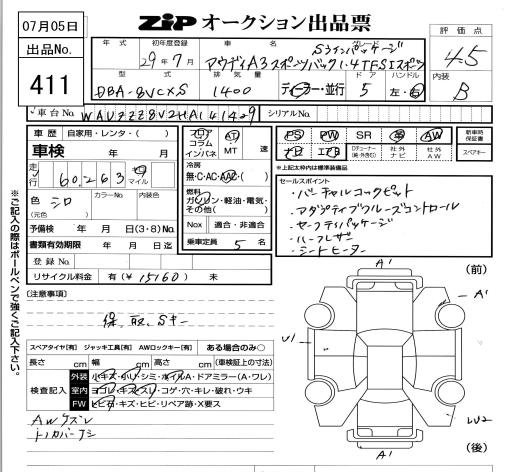 07月05日
ZIP オークション出品票
出品No.
411
年 式 初年度登録 車 名 評 価 点
29年7月 アウディA3スポーツバック1.4TFSIスポーツ
4.5
型 式 排 気 量 ド ア ハンドル 内装
DBA-8VCXS 1400 ディーラー・並行 5 左・右 B
車台No. WAUZZZ8V2HA141429 シリアルNo.
車 歴 自家用・レンタ・( )
フロア コラム インパネ AT MT 速
PS PW SR 革 AW 新車時保証書
車検 年 月
ナビ エアB 社外ナビ 社外AW スペアキー
冷房 無・C・AC・AAC・( )
※上記太枠内は標準装備品
走行 60,263 キロ マイル
セールスポイント
・バーチャルコックピット
・アダプティブクルーズコントロール
・セーフティパッケージ
・ハーフレザー
・シートヒーター
燃料 ガソリン・軽油・電気・その他( )
色 シロ カラーNo. 内装色
(元色)
Nox 適合・非適合
予備検 年 月(3・8)No.
書類有効期限 年 月 日迄
乗車定員 5 名
登 録 No.
リサイクル料金 有(¥15160) 未
(前)
A1
A1
U1
A1
(後)
[注意事項]
保、取、Sキー
スペアタイヤ[有] ジャッキ工具[有] AWロックキー[有] ある場合のみ○
長さ cm 幅 cm 高さ cm (車検証上の寸法)
検査記入
外装 小キズ・小U・シミ・ホイルA・ドアミラー(A・ワレ)
室内 ヨゴレ・キズ・スリ・コゲ・穴・キレ・破れ・ウキ
FW ヒビ石・キズ・ヒビ・リペア跡・X要ス
AWケズレ
※ご記入の際はボールペンで強くご記入下さい。